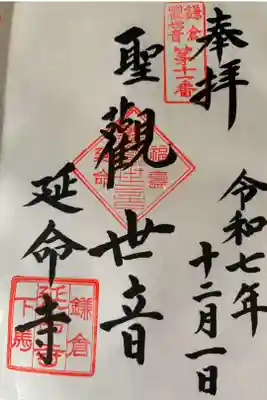 奉拝
鎌倉
觀世音
第十一番
令和七年
十二月一日
聖觀世音
福壽
延命寺
鎌倉
延命寺
下馬